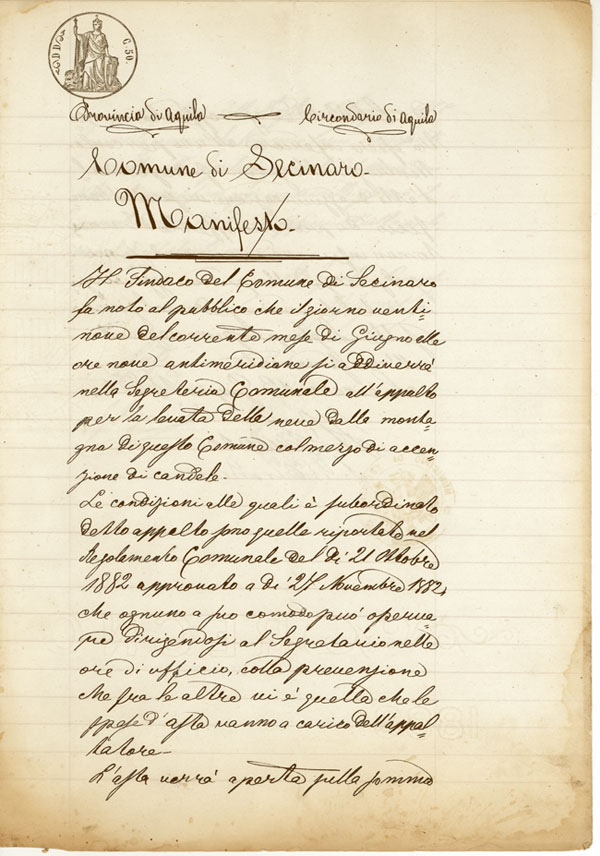 C. 50.
Provincia di Aquila — Circondario di Aquila
Comune di Secinaro.
Manifesto.
Il Sindaco del Comune di Secinaro
fa noto al pubblico che il giorno venti=
nove del corrente mese di Giugno alle
ore nove antimeridiane si addiverrà
nella Segreteria Comunale all'appalto
per la levata della neve dalla monta=
gna di questo Comune col mezzo di accen=
zione di candele.
Le condizioni alle quali è subordinato
detto appalto sono quelle riportate nel
Regolamento Comunale del dì 21 Ottobre
1882 approvato a dì 27 Novembre 1882,
che ognuno a suo comodo può osserva=
re dirigendosi al Segretario nelle
ore di ufficio, colla prevenzione
che fra le altre vi è quella che le
spese d'asta vanno a carico dell'appal=
tatore.
L'asta verrà aperta sulla somma